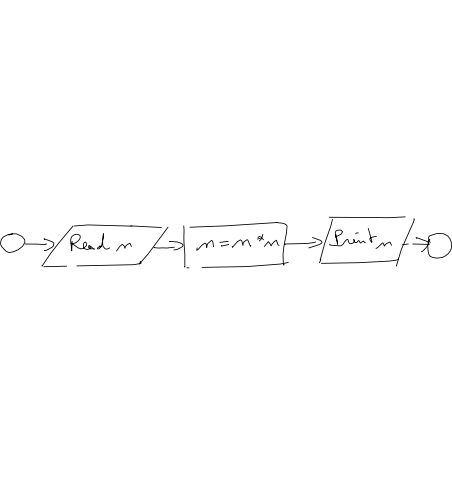 Read n
n = n * n
Print n